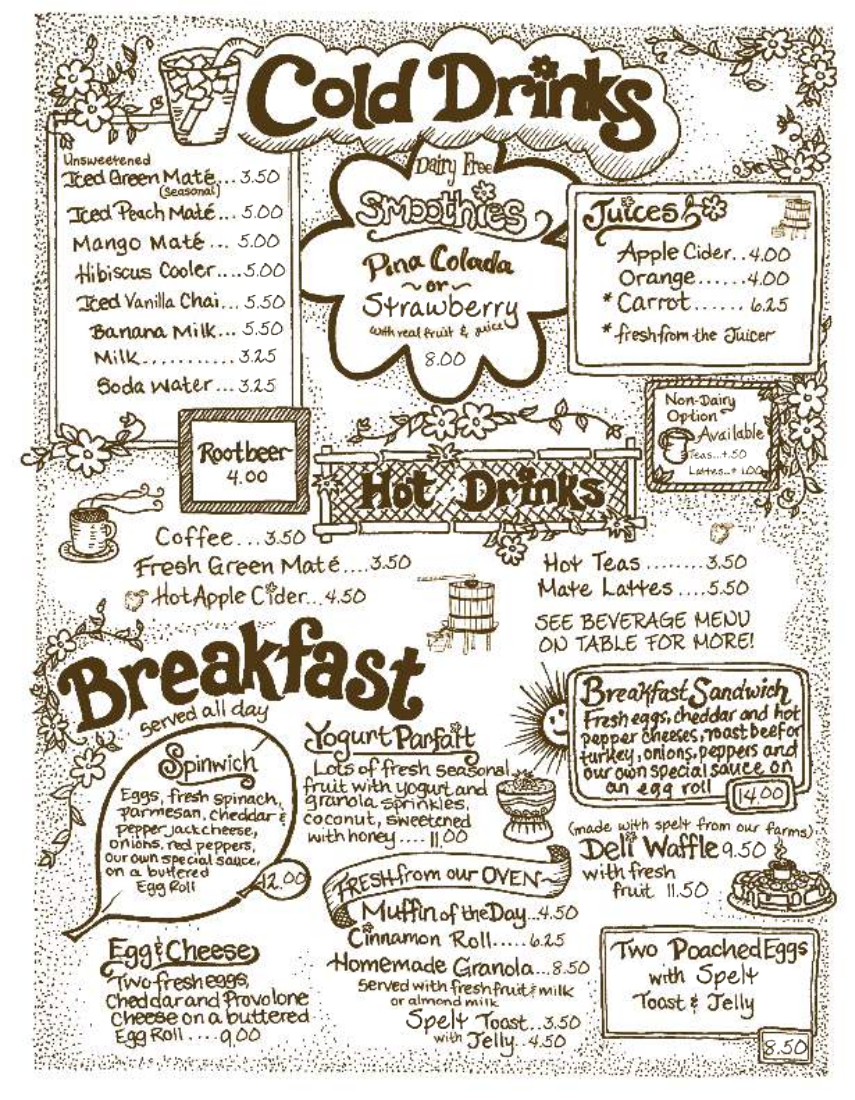 Cold Drinks
Unsweetened
Iced Green Maté... 3.50
(Seasonal)
Iced Peach Maté... 5.00
Mango Maté... 5.00
Hibiscus Cooler....5.00
Iced Vanilla Chai... 5.50
Banana Milk... 5.50
Milk........... 3.25
Soda Water... 3.25
Dairy Free
Smoothies
Pina Colada
~ or ~
Strawberry
with real fruit & juice
8.00
Juices
Apple Cider..4.00
Orange......4.00
* Carrot...... 6.25
* fresh from the Juicer
Non-Dairy
Option
Available
Teas...+.50
Lattes..+ 1.00
Rootbeer
4.00
Hot Drinks
Coffee...3.50
Fresh Green Maté....3.50
Hot Apple Cider...4.50
Hot Teas ........3.50
Mate Lattes ....5.50
SEE BEVERAGE MENU
ON TABLE FOR MORE!
Breakfast
served all day
Spinwich
Eggs, fresh spinach,
parmesan, cheddar &
pepper jack cheese,
onions, red peppers,
our own special sauce,
on a buttered
Egg Roll
12.00
Yogurt Parfait
Lots of fresh seasonal
fruit with yogurt and
granola sprinkles,
coconut, sweetened
with honey .... 11.00
Breakfast Sandwich
Fresh eggs, cheddar and hot
pepper cheeses, roast beef or
turkey, onions, peppers and
our own special sauce on
an egg roll
14.00
(made with spelt from our farms)
Deli Waffle 9.50
with fresh
fruit 11.50
FRESH from our OVEN
Muffin of the Day...4.50
Cinnamon Roll.....6.25
Homemade Granola...8.50
Served with fresh fruit & milk
or almond milk
Spelt Toast...3.50
with Jelly..4.50
Egg & Cheese
Two fresh eggs,
Cheddar and Provolone
Cheese on a buttered
Egg Roll ....9.00
Two Poached Eggs
with Spelt
Toast & Jelly
8.50